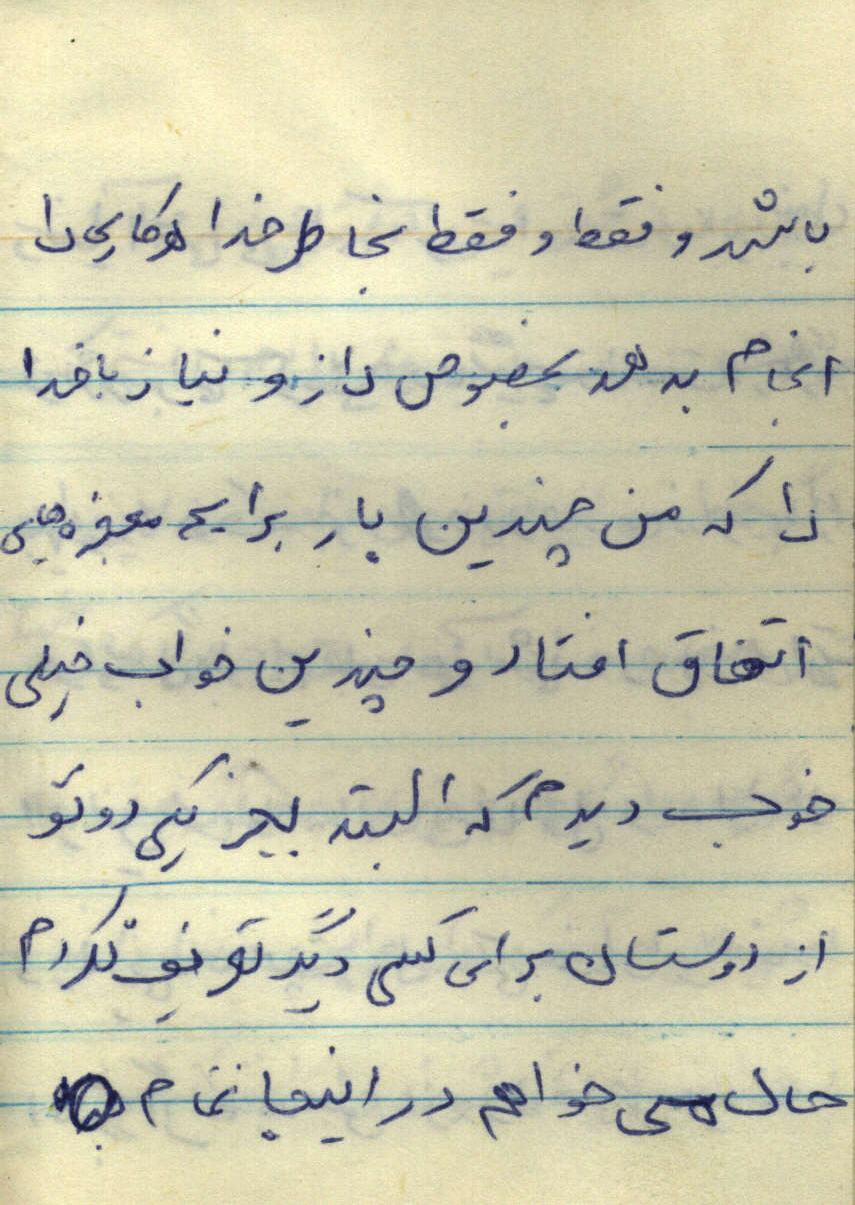 باشد و فقط و فقط بخاطر خدا هر کاری را
انجام بدهد بخصوص راز و نیاز با خدا
را که من چندین بار برایم معجزه‌هایی
اتفاق افتاد و چندین خواب خیلی
خوب دیدم که البته بجز یکی دو تو
از دوستان برای کسی دیگر تعریف نکردم
حال می خواهم در اینجا تمام